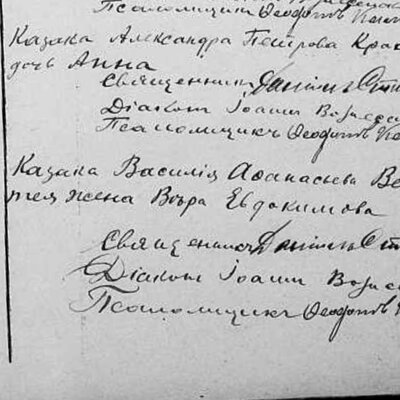 Псаломщикъ Ѳеодотъ
Казака Александра Петрова Крас
дочь Анна
Священникъ
Діаконъ Іоаннъ Вознесе
Псаломщикъ Ѳеодотъ
Казака Василія Аѳанасьева Ве
тея жена Вѣра Евдокимова
Священникъ
Діаконъ Іоаннъ Вознес
Псаломщикъ Ѳеодотъ